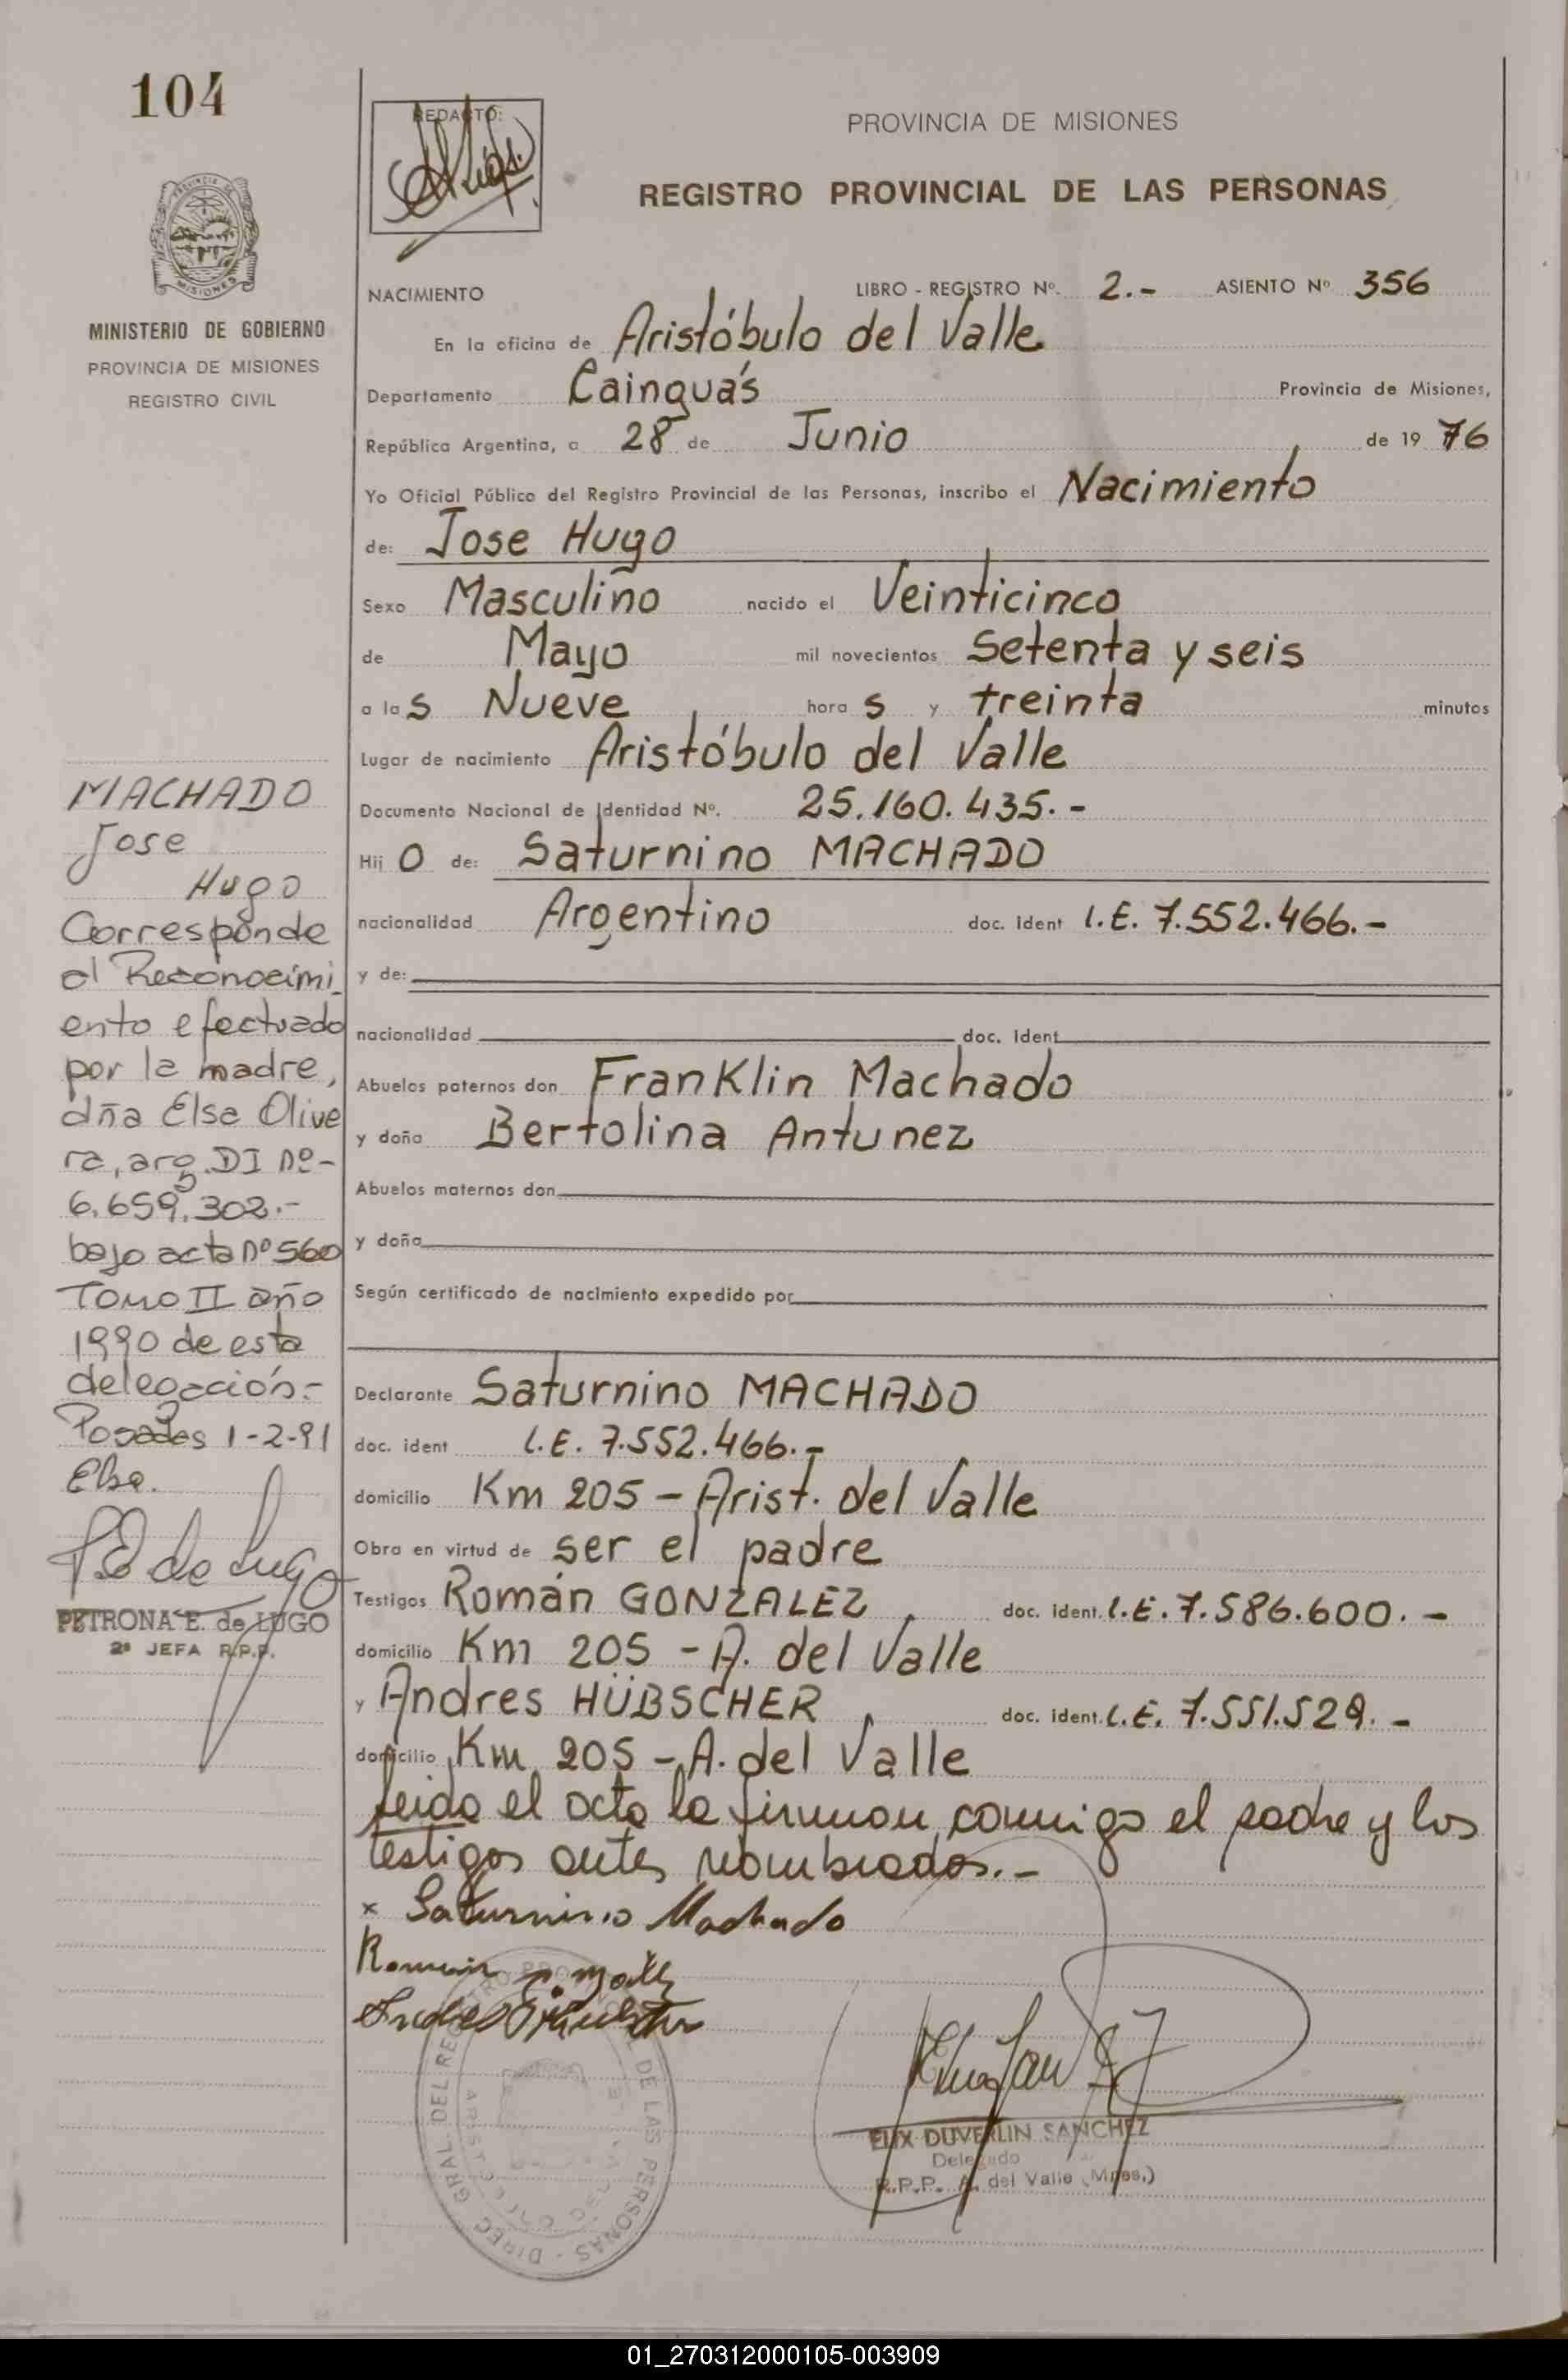 104
MINISTERIO DE GOBIERNO
PROVINCIA DE MISIONES
REGISTRO CIVIL
MACHADO
Jose
Hugo
Corresponde
al Reconocimi_
ento efectuado
por la madre,
dña Elsa Olive
ra, arg. DI nº-
6.659.302.-
bajo acta nº 560
Tomo II año
1990 de esta
delegación.-
Posadas 1-2-91
Elsa.
PE de Lugo
PETRONA E. de LUGO
2ª JEFA R.P.P.
REDACTO:
PROVINCIA DE MISIONES
REGISTRO PROVINCIAL DE LAS PERSONAS
NACIMIENTO LIBRO - REGISTRO Nº. 2.- ASIENTO Nº 356
En la oficina de Aristóbulo del Valle
Departamento Cainguás Provincia de Misiones,
República Argentina, a 28 de Junio de 19 76
Yo Oficial Público del Registro Provincial de las Personas, inscribo el Nacimiento
de: Jose Hugo
Sexo Masculino nacido el Veinticinco
de Mayo mil novecientos Setenta y seis
a las Nueve horas y treinta minutos
Lugar de nacimiento Aristóbulo del Valle
Documento Nacional de Identidad Nº. 25.160.435.-
Hijo de: Saturnino MACHADO
nacionalidad Argentino doc. ident L.E. 7.552.466.-
y de:
nacionalidad doc. ident
Abuelos paternos don FranKlin Machado
y doña Bertolina Antunez
Abuelos maternos don
y doña
Según certificado de nacimiento expedido por
Declarante Saturnino MACHADO
doc. ident L.E. 7.552.466.-
domicilio Km 205 - Arist. del Valle
Obra en virtud de ser el padre
Testigos Román GONZALEZ, doc. ident. L.E. 7.586.600.-
domicilio Km 205 - A. del Valle
y Andres HÜBSCHER, doc. ident. L.E. 7.551.529.-
domicilio Km 205 - A. del Valle
leida el acta la firman conmigo el padre y los
testigos antes nombrados.-
x Saturnino Machado
Roman
ELIX DUVERLIN SANCHEZ
Delegado
R.P.P. A. del Valle (Mnes.)
DIREC. GRAL. DEL REGISTRO PROVINCIAL DE LAS PERSONAS
01_270312000105-003909